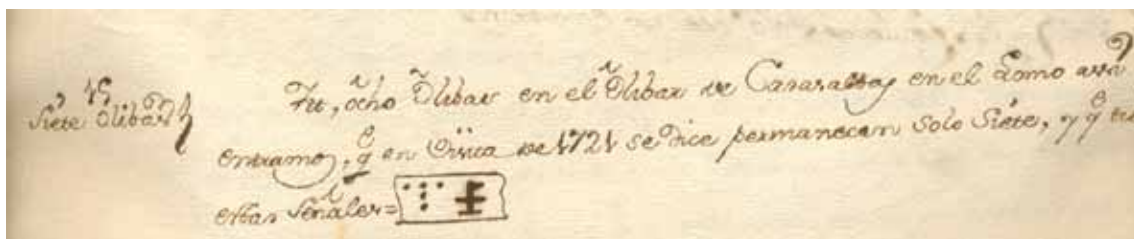 Siete Olibar
Itt, ocho Olibar en el Olibar de Casasaltas en el Lomo
entramos, q.e en Visita de 1721 se dice permanecen solo Siete, y q.e
estas Señales=